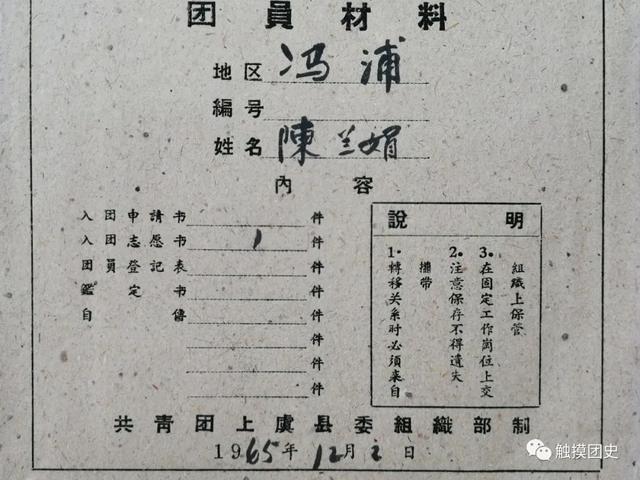 团員材料
地区 冯浦
編号
姓名 陳兰娟
內容
入团申請书 件
入团志愿书 1 件
团員登記表 件
鑑定书 件
自傳 件
件
件
件
說明
1·轉移关系时必須亲自
攜帶
2·注意保存不得遺失
3·在固定工作崗位上交
組織上保管
共青团上虞县委組織部制
1965年12月2日
触摸团史